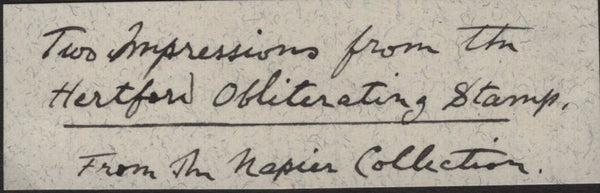 Two Impressions from the
Hertford Obliterating Stamp.
From the Napier Collection.